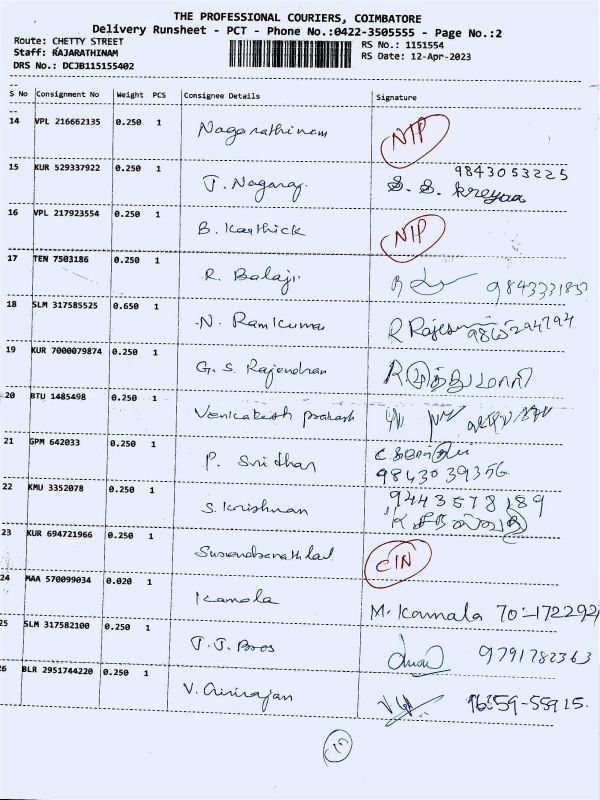 THE PROFESSIONAL COURIERS, COIMBATORE
Delivery Runsheet - PCT - Phone No.:0422-3505555 - Page No.:2
Route: CHETTY STREET RS No.: 1151554
Staff: RAJARATHINAM RS Date: 12-Apr-2023
DRS No.: DCJB115155402
S No Consignment No Weight PCS Consignee Details Signature
14 VPL 216662135 0.250 1 Nagarathinam NIP
15 KUR 529337922 0.250 1 J. Nagaraj 9843053225
S. S.
16 VPL 217923554 0.250 1 B. Karthick NIP
17 TEN 7503186 0.250 1 R. Balaji
18 SLM 317585525 0.650 1 N. Ramkumar R
19 KUR 7000079874 0.250 1 G. S. Rajendran R
20 BTU 1485498 0.250 1 Venkatesh prakash
21 GPM 642033 0.250 1 P. Sridhar
9843039356
22 KMU 3352078 0.250 1 S. Krishnan 9443578189
23 KUR 694721966 0.250 1 CIN
24 MAA 570099034 0.020 1 Kamala M. Kamala
25 SLM 317582100 0.250 1 J. J. Bros 9791782363
26 BLR 2951744220 0.250 1 V. Girirajan